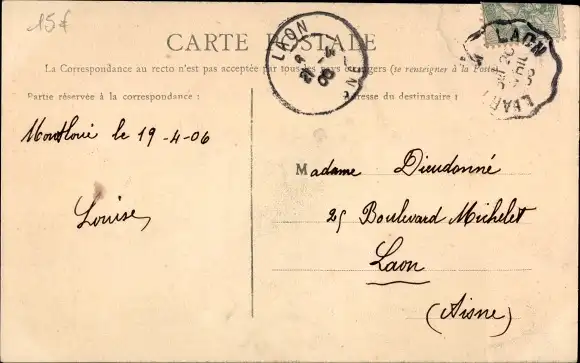 15€
CARTE POSTALE
La Correspondance au recto n'est pas acceptée par tous les pays étrangers (se renseigner à la Poste)
Partie réservée à la correspondance :
Adresse du destinataire :
LAON
AISNE
LAON
Montloué le 19-4-06
Louise
Madame Dieudonné
25 Boulevard Michelet
Laon
(Aisne)